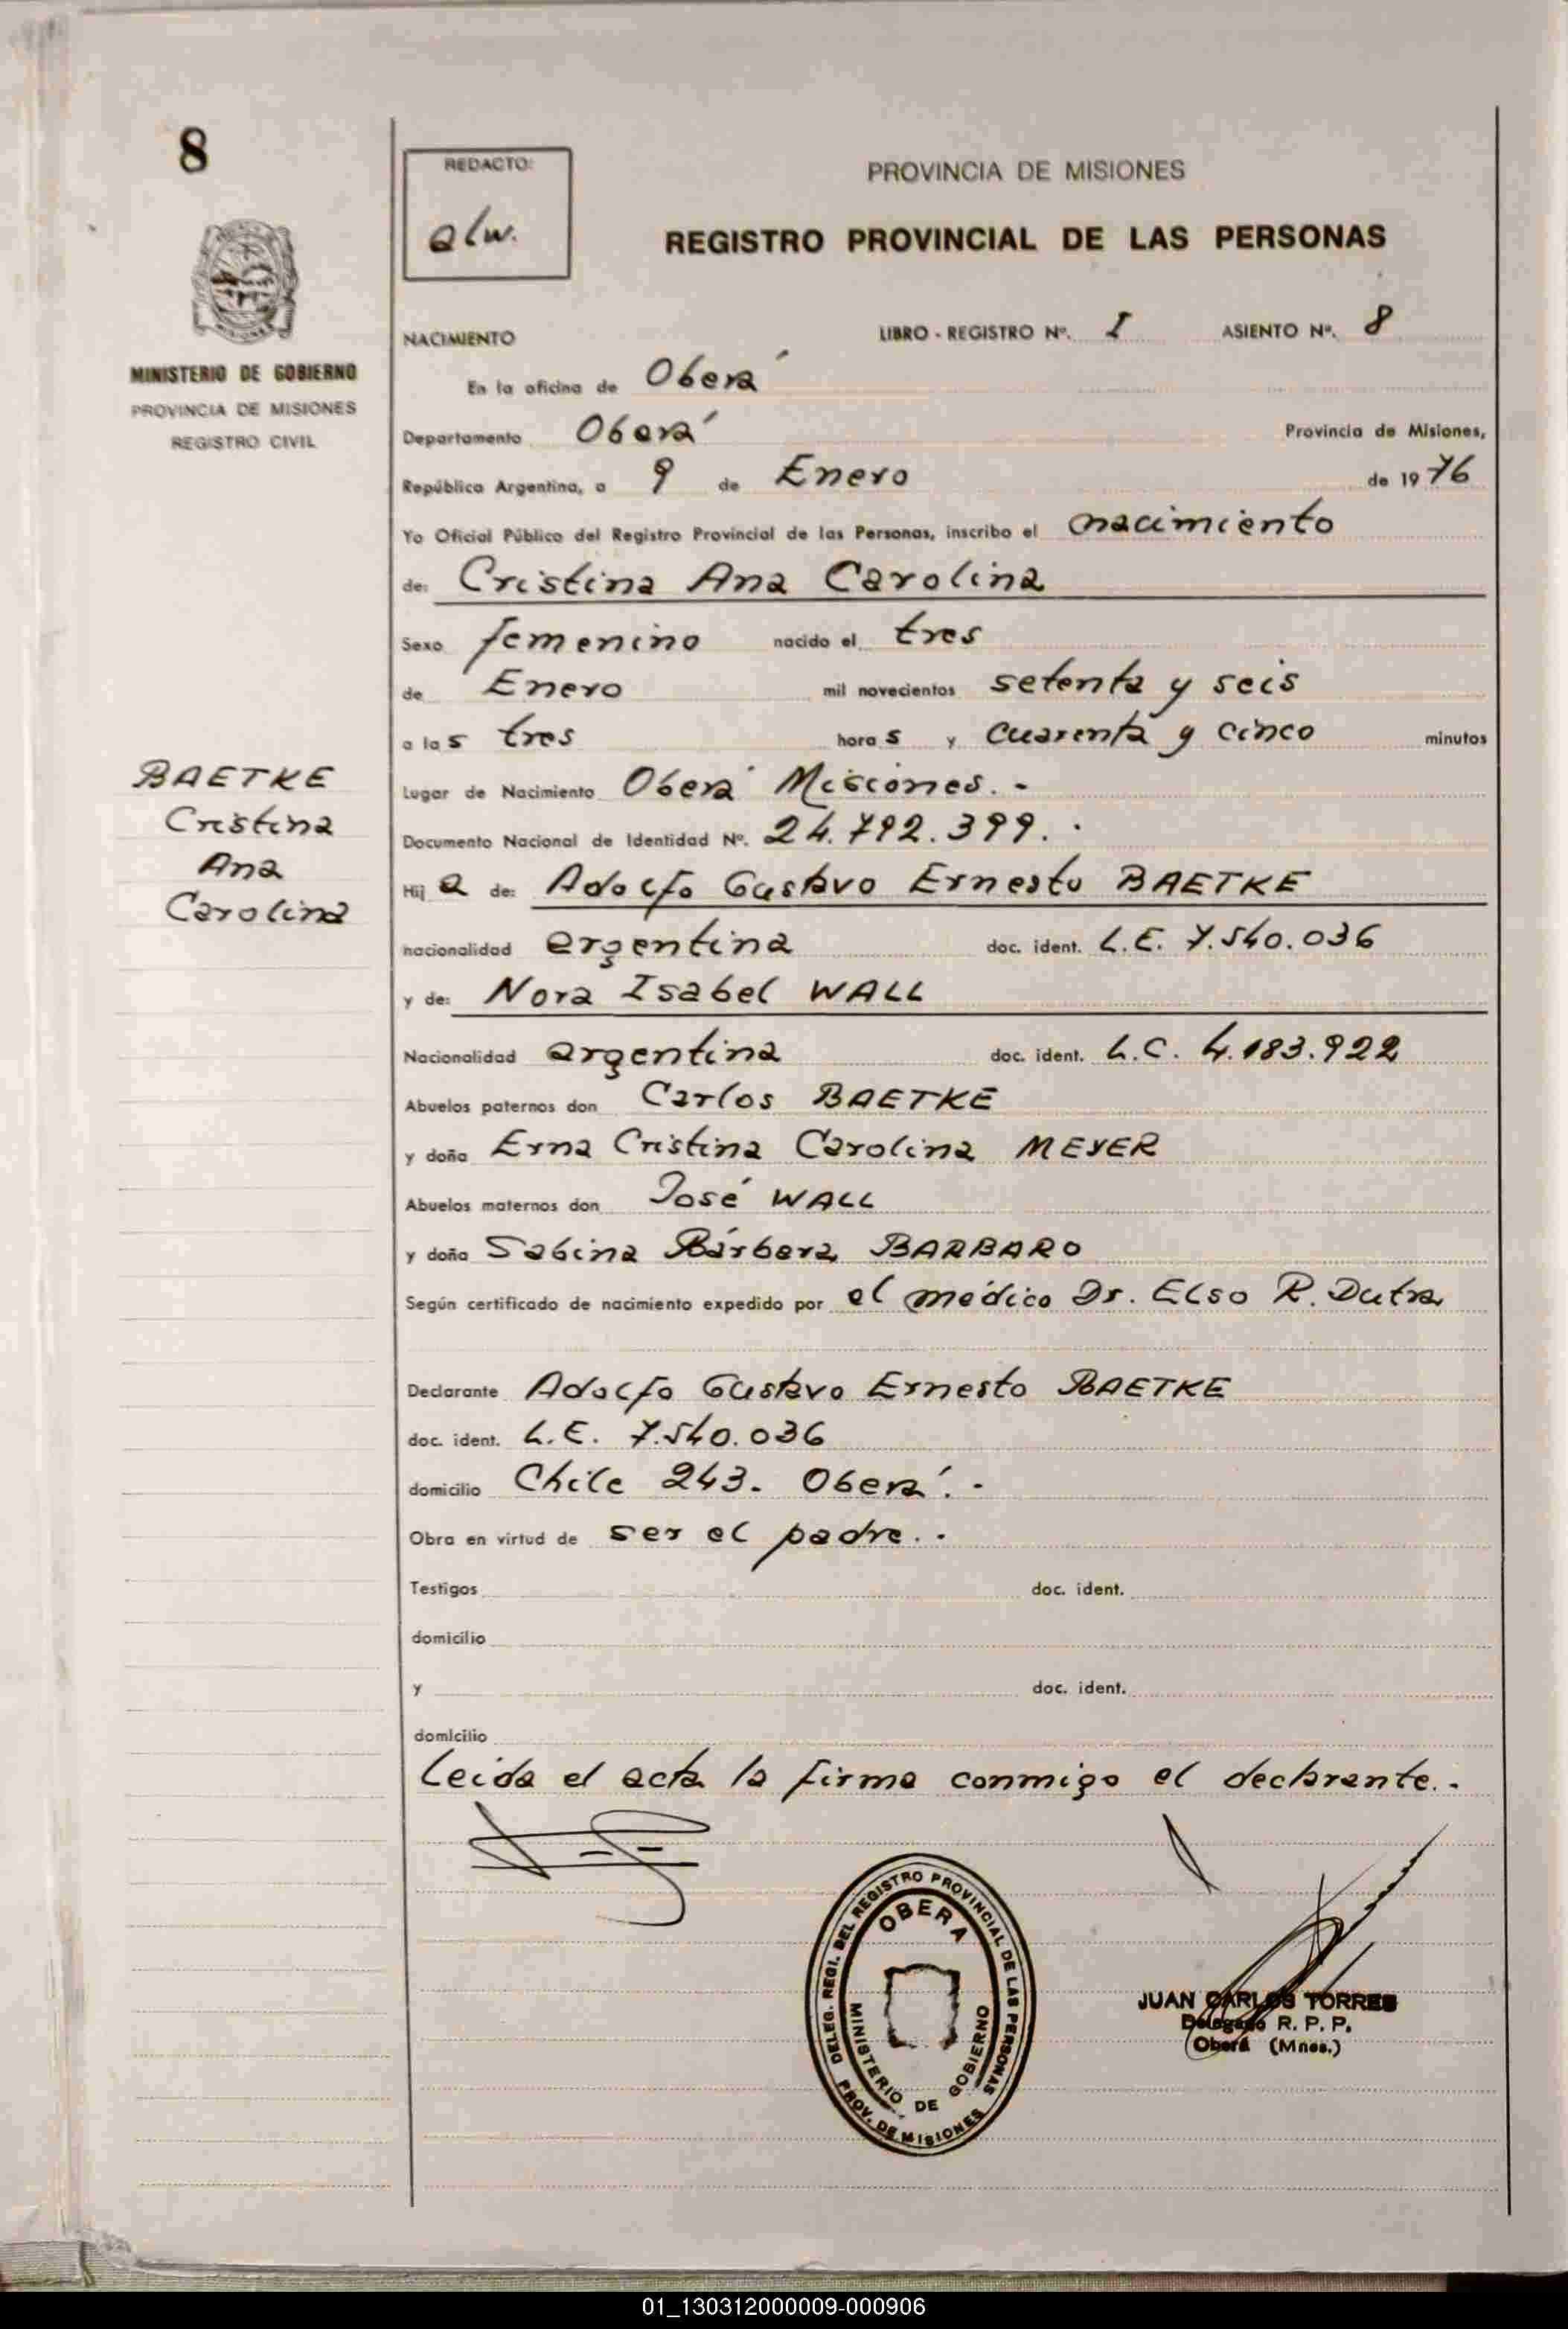 8
REDACTO:
alw.
PROVINCIA DE MISIONES
REGISTRO PROVINCIAL DE LAS PERSONAS
MINISTERIO DE GOBIERNO
PROVINCIA DE MISIONES
REGISTRO CIVIL
NACIMIENTO LIBRO - REGISTRO Nº. I ASIENTO Nº. 8
En la oficina de Oberá
Departamento Oberá Provincia de Misiones,
República Argentina, a 9 de Enero de 1976
Yo Oficial Público del Registro Provincial de las Personas, inscribo el nacimiento
de: Cristina Ana Carolina
Sexo femenino nacido el tres
de Enero mil novecientos setenta y seis
a las tres horas y cuarenta y cinco minutos
Lugar de Nacimiento Oberá Misiones. -
Documento Nacional de Identidad Nº. 24.792.399. -
Hija de: Adolfo Gustavo Ernesto BAETKE
nacionalidad argentina doc. ident. L.E. 7.540.036
y de: Nora Isabel WALL
Nacionalidad argentina doc. ident. L.C. 4.183.922
Abuelos paternos don Carlos BAETKE
y doña Erna Cristina Carolina MEYER
Abuelos maternos don José WALL
y doña Sabina Bárbara BARBARO
Según certificado de nacimiento expedido por el médico Dr. Elso R. Dutra
Declarante Adolfo Gustavo Ernesto BAETKE
doc. ident. L.E. 7.540.036
domicilio Chile 243. Oberá. -
Obra en virtud de ser el padre. -
Testigos doc. ident.
domicilio
y doc. ident.
domicilio
Leida el acta la firma conmigo el declarante. -
BAETKE
Cristina
Ana
Carolina
DELEG. REGI. DEL REGISTRO PROVINCIAL DE LAS PERSONAS
PROV. DE MISIONES
OBERA
MINISTERIO DE GOBIERNO
JUAN CARLOS TORRES
Delegado R. P. P.
Oberá (Mnes.)
01_130312000009-000906